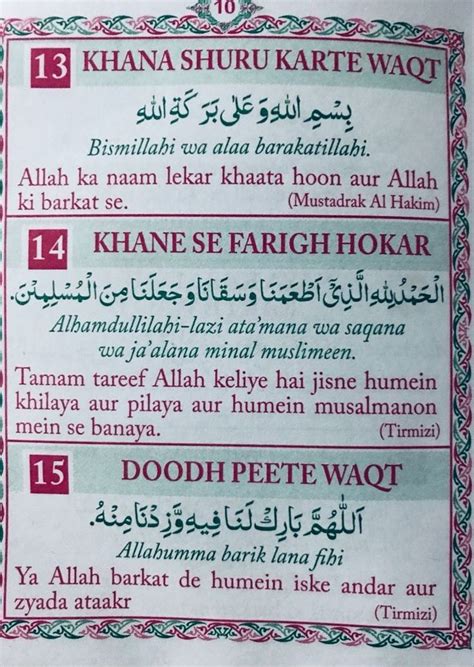 10
13 KHANA SHURU KARTE WAQT
بِسْمِ اللهِ وَ عَلٰى بَرَكَةِ اللهِ
Bismillahi wa alaa barakatillahi.
Allah ka naam lekar khaata hoon aur Allah
ki barkat se. (Mustadrak Al Hakim)
14 KHANE SE FARIGH HOKAR
اَلْحَمْدُ لِلهِ الَّذِيْٓ اَطْعَمَنَا وَسَقَانَا وَجَعَلَنَا مِنَ الْمُسْلِمِيْنَ.
Alhamdullilahi-lazi ata'mana wa saqana
wa ja'alana minal muslimeen.
Tamam tareef Allah keliye hai jisne humein
khilaya aur pilaya aur humein musalmanon
mein se banaya. (Tirmizi)
15 DOODH PEETE WAQT
اَللّٰهُمَّ بَارِكْ لَنَا فِيْهِ وَزِدْنَا مِنْهُ.
Allahumma barik lana fihi
Ya Allah barkat de humein iske andar aur
zyada ataakr (Tirmizi)